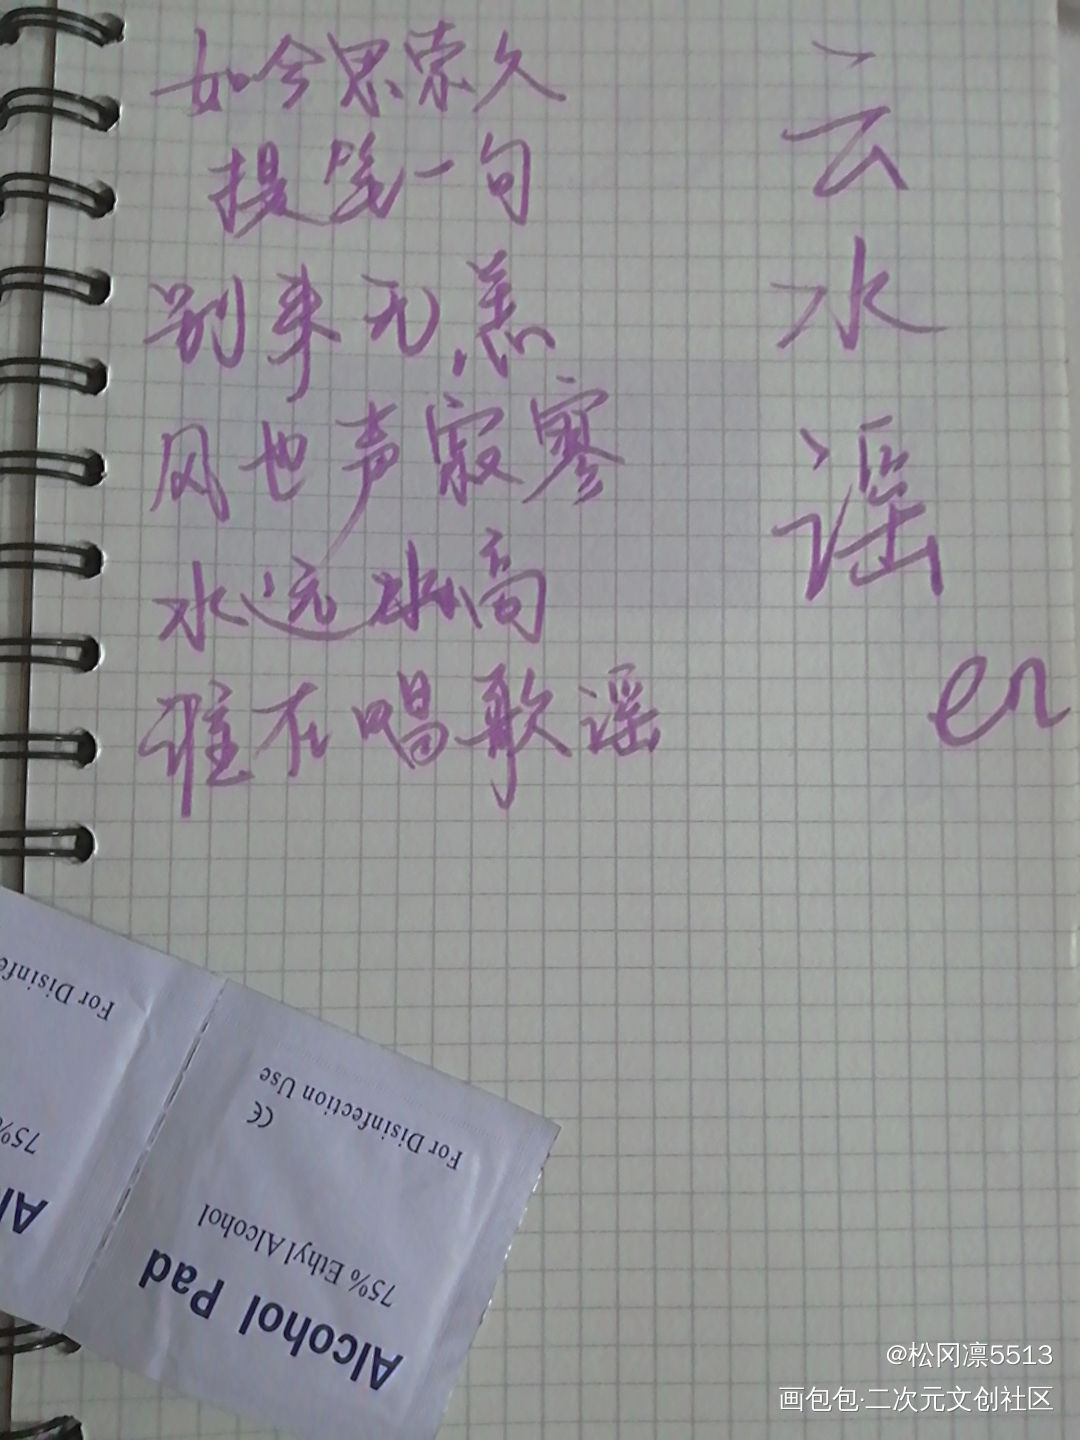 如今思索久
提笔一句
别来无恙
风也声寂寥
水远水高
谁在唱歌谣
云
水
谣
en
For Disinfection Use
CE
75% Ethyl Alcohol
Alcohol Pad
For Disinfe
75%
Al
@松冈凛5513
画包包·二次元文创社区